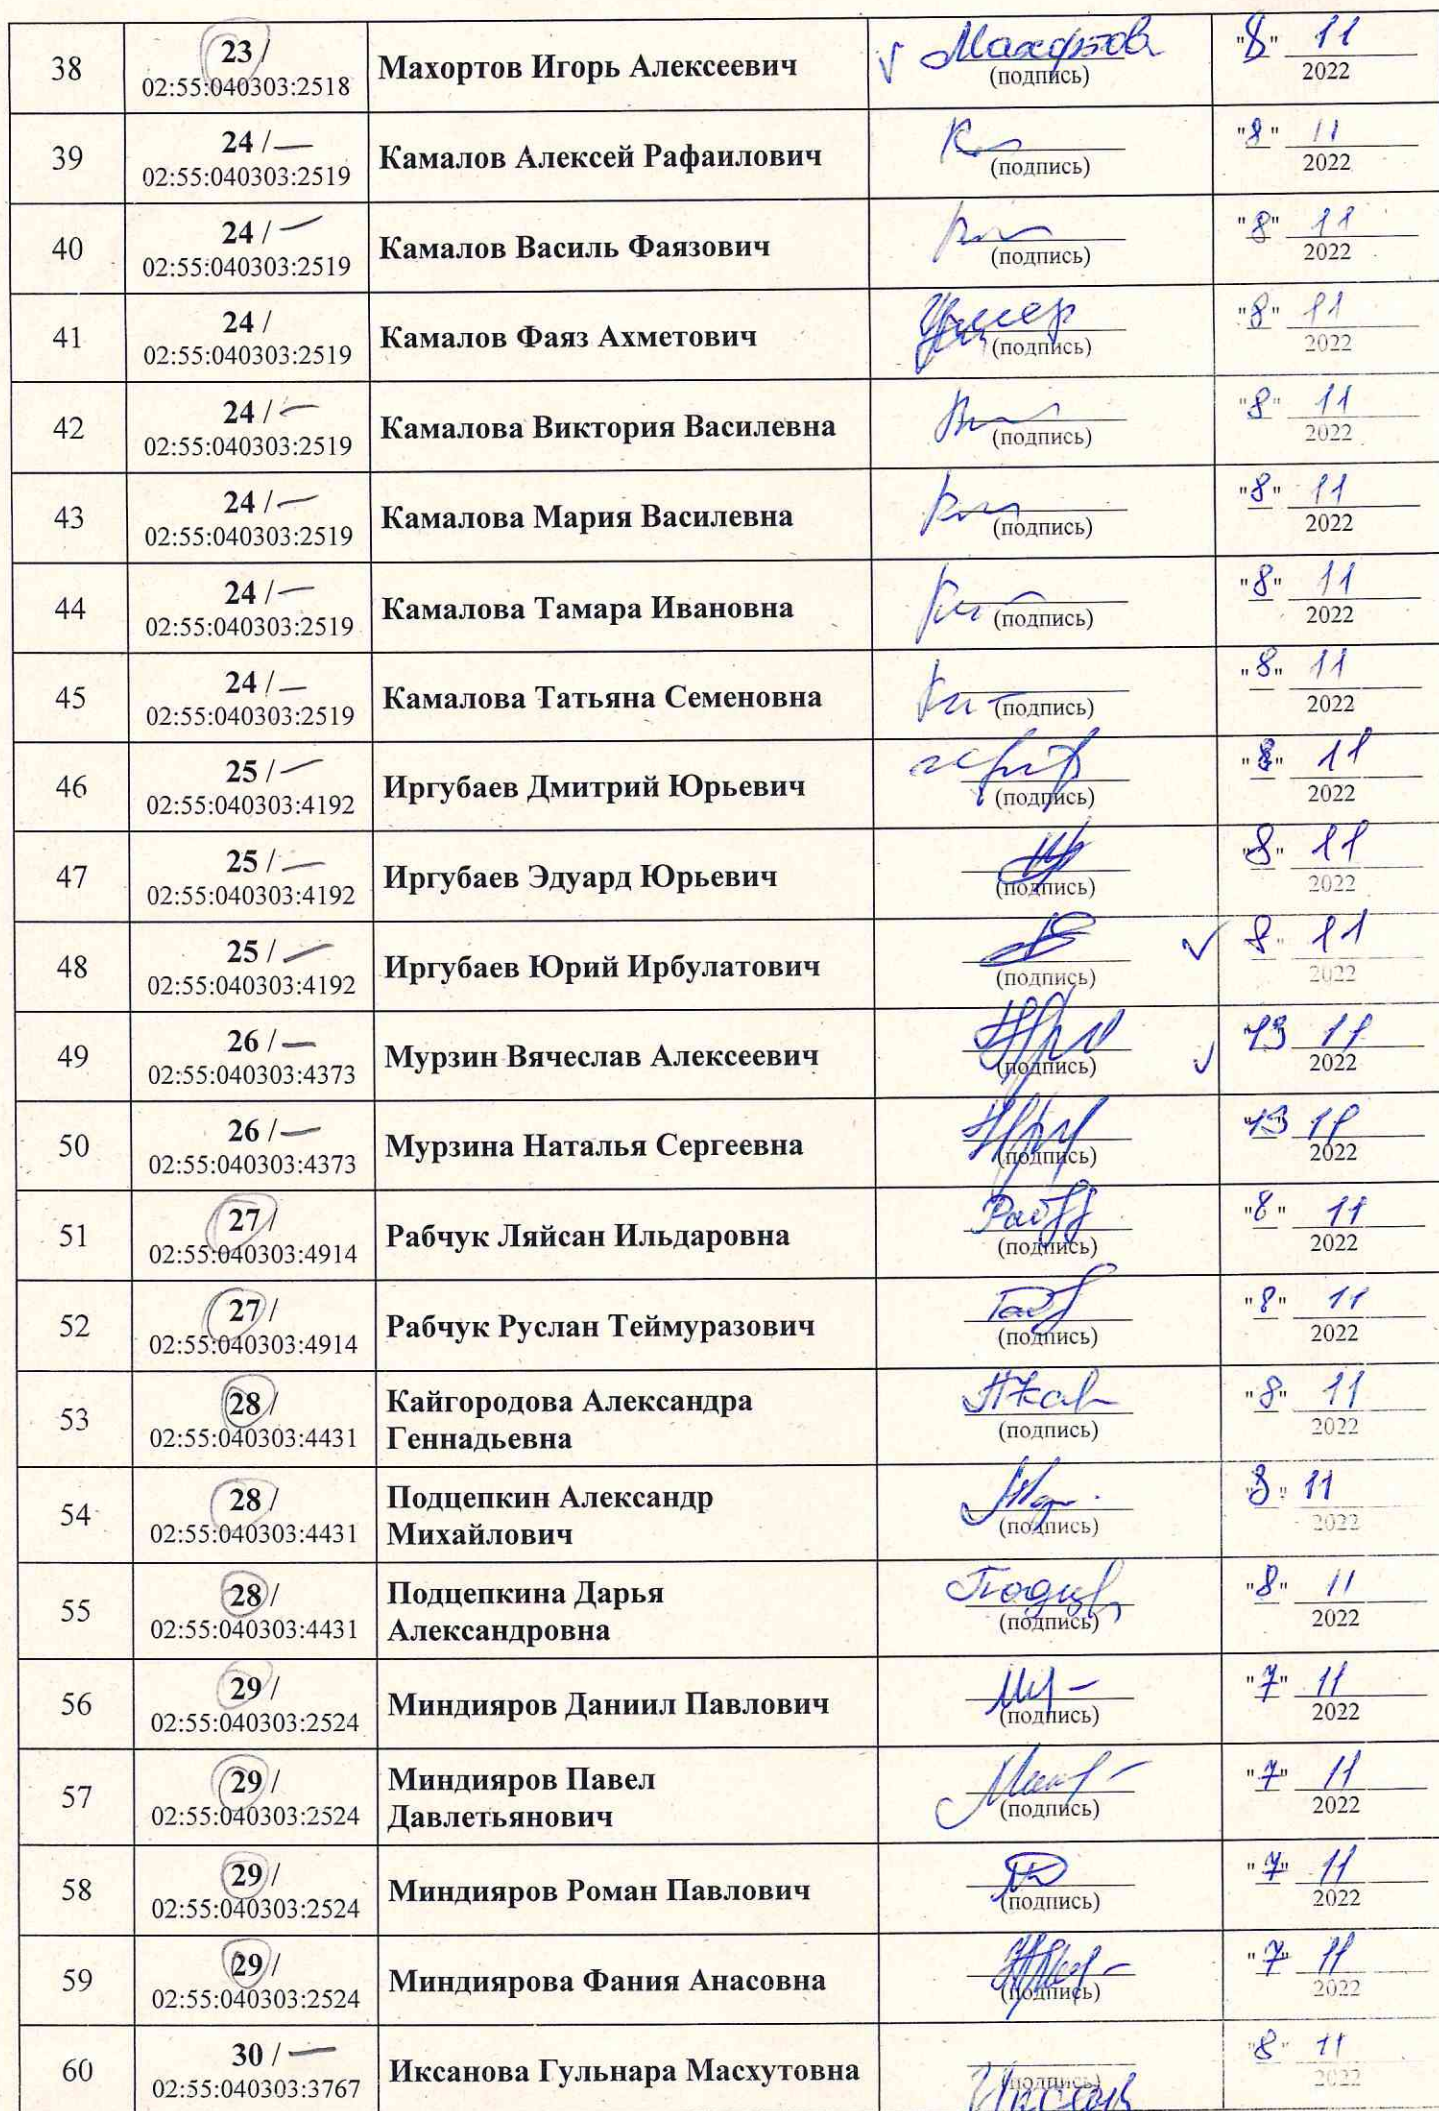 38
23 /
02:55:040303:2518
Махортов Игорь Алексеевич
Махортов
(подпись)
"8" 11
2022
39
24 / —
02:55:040303:2519
Камалов Алексей Рафаилович
(подпись)
"8" 11
2022
40
24 / —
02:55:040303:2519
Камалов Василь Фаязович
(подпись)
"8" 11
2022
41
24 /
02:55:040303:2519
Камалов Фаяз Ахметович
(подпись)
"8" 11
2022
42
24 / —
02:55:040303:2519
Камалова Виктория Василевна
(подпись)
"8" 11
2022
43
24 / —
02:55:040303:2519
Камалова Мария Василевна
(подпись)
"8" 11
2022
44
24 / —
02:55:040303:2519
Камалова Тамара Ивановна
(подпись)
"8" 11
2022
45
24 / —
02:55:040303:2519
Камалова Татьяна Семеновна
(подпись)
"8" 11
2022
46
25 / —
02:55:040303:4192
Иргубаев Дмитрий Юрьевич
(подпись)
"8" 11
2022
47
25 / —
02:55:040303:4192
Иргубаев Эдуард Юрьевич
(подпись)
"8" 11
2022
48
25 / —
02:55:040303:4192
Иргубаев Юрий Ирбулатович
(подпись)
"8" 11
2022
49
26 / —
02:55:040303:4373
Мурзин Вячеслав Алексеевич
(подпись)
"13" 11
2022
50
26 / —
02:55:040303:4373
Мурзина Наталья Сергеевна
(подпись)
"13" 11
2022
51
27 /
02:55:040303:4914
Рабчук Ляйсан Ильдаровна
(подпись)
"8" 11
2022
52
27 /
02:55:040303:4914
Рабчук Руслан Теймуразович
(подпись)
"8" 11
2022
53
28 /
02:55:040303:4431
Кайгородова Александра
Геннадьевна
(подпись)
"8" 11
2022
54
28 /
02:55:040303:4431
Подцепкин Александр
Михайлович
(подпись)
"8" 11
2022
55
28 /
02:55:040303:4431
Подцепкина Дарья
Александровна
(подпись)
"8" 11
2022
56
29 /
02:55:040303:2524
Миндияров Даниил Павлович
(подпись)
"7" 11
2022
57
29 /
02:55:040303:2524
Миндияров Павел
Давлетьянович
(подпись)
"7" 11
2022
58
29 /
02:55:040303:2524
Миндияров Роман Павлович
(подпись)
"7" 11
2022
59
29 /
02:55:040303:2524
Миндиярова Фания Анасовна
(подпись)
"7" 11
2022
60
30 / —
02:55:040303:3767
Иксанова Гульнара Масхутовна
(подпись)
"8" 11
2022